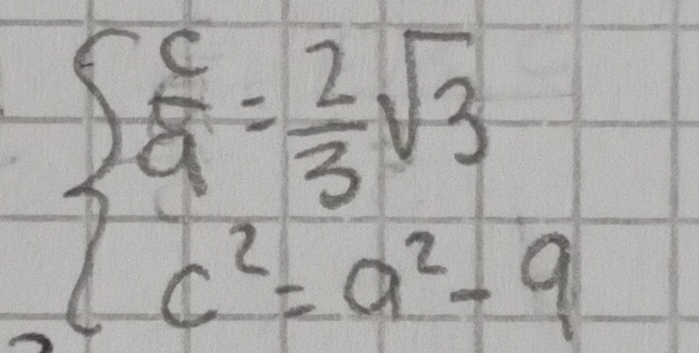 { c/a = 2/3 √3
c² = a² - 9